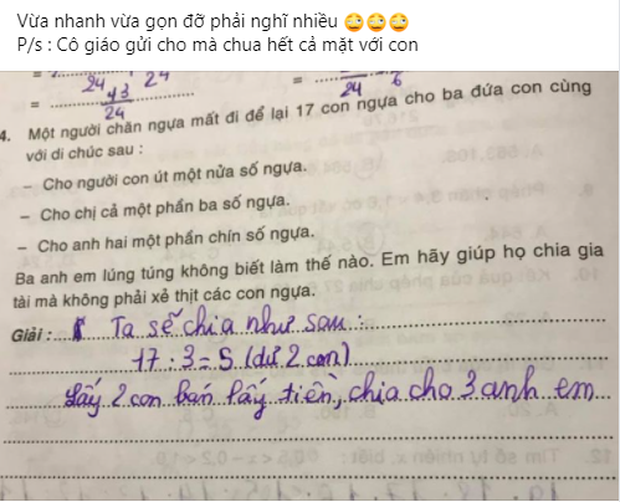 Vừa nhanh vừa gọn đỡ phải nghĩ nhiều 🙄🙄🙄
P/s : Cô giáo gửi cho mà chua hết cả mặt với con
24 24
= 43
24
= 24 6
4. Một người chăn ngựa mất đi để lại 17 con ngựa cho ba đứa con cùng
với di chúc sau :
– Cho người con út một nửa số ngựa.
– Cho chị cả một phần ba số ngựa.
– Cho anh hai một phần chín số ngựa.
Ba anh em lúng túng không biết làm thế nào. Em hãy giúp họ chia gia
tài mà không phải xẻ thịt các con ngựa.
Giải : Ta sẽ chia như sau :
17 : 3 = 5 (dư 2 con)
Lấy 2 con bán lấy tiền, chia cho 3 anh em